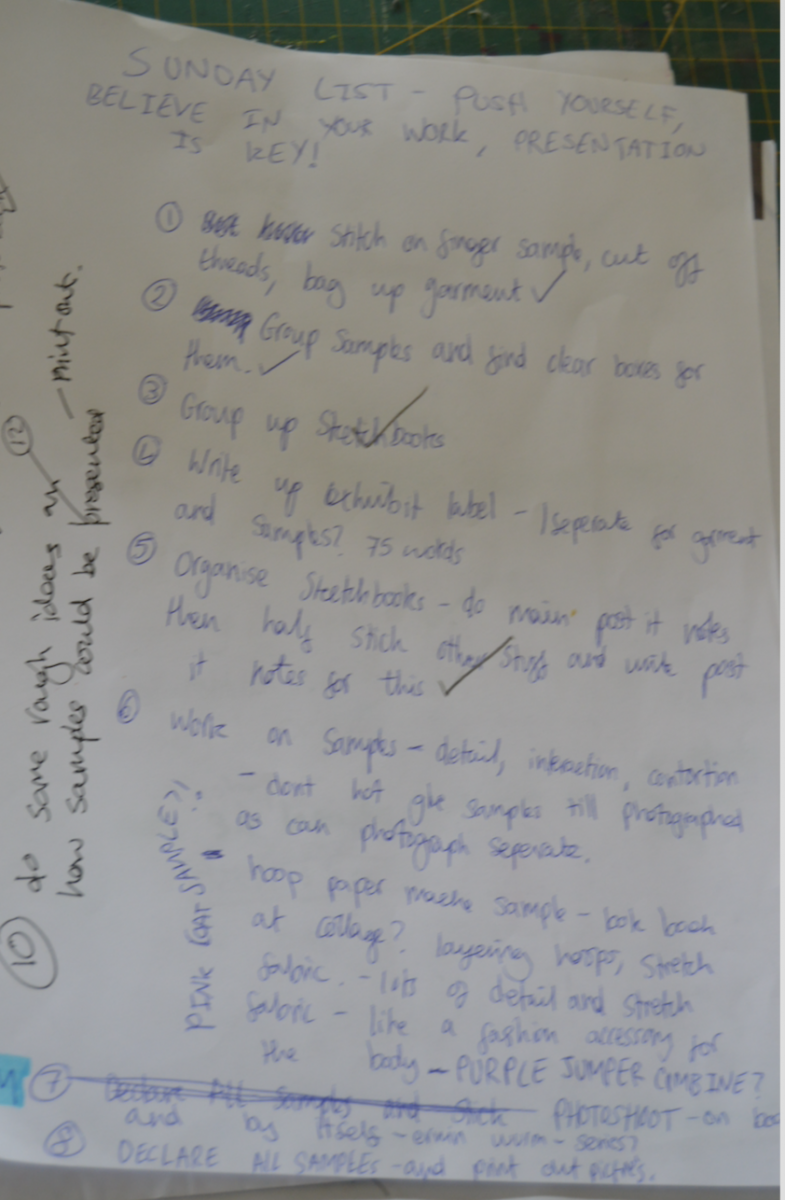 SUNDAY LIST - PUSH YOURSELF,
BELIEVE IN YOUR WORK, PRESENTATION
IS KEY!
① Stitch on finger sample, cut off
threads, bag up garment ✓
② Group Samples and find clear boxes for
them. ✓
③ Group up Sketchbooks ✓
④ Write up exhibit label - seperate for garment
and samples? 75 words
⑤ Organise Sketchbooks - do main post it notes
then half stick other stuff and write post
it notes for this ✓
⑥ Work on samples - detail, interaction, contortion
- dont hot glue samples till photographed
as can photograph seperate.
hoop paper mache sample - look back
at collage? layering hoops, stretch
fabric. - lots of detail and stretch
fabric - like a fashion accessory for
the body - PURPLE JUMPER COMBINE?
PINK COAT SAMPLE?!
⑦ Declare All Samples and Stick PHOTOSHOOT - on
and by itself - erwin wurm - series?
⑧ DECLARE ALL SAMPLES - and print out
⑩ do some rough ideas on
how samples could be presented
⑫ - print out.